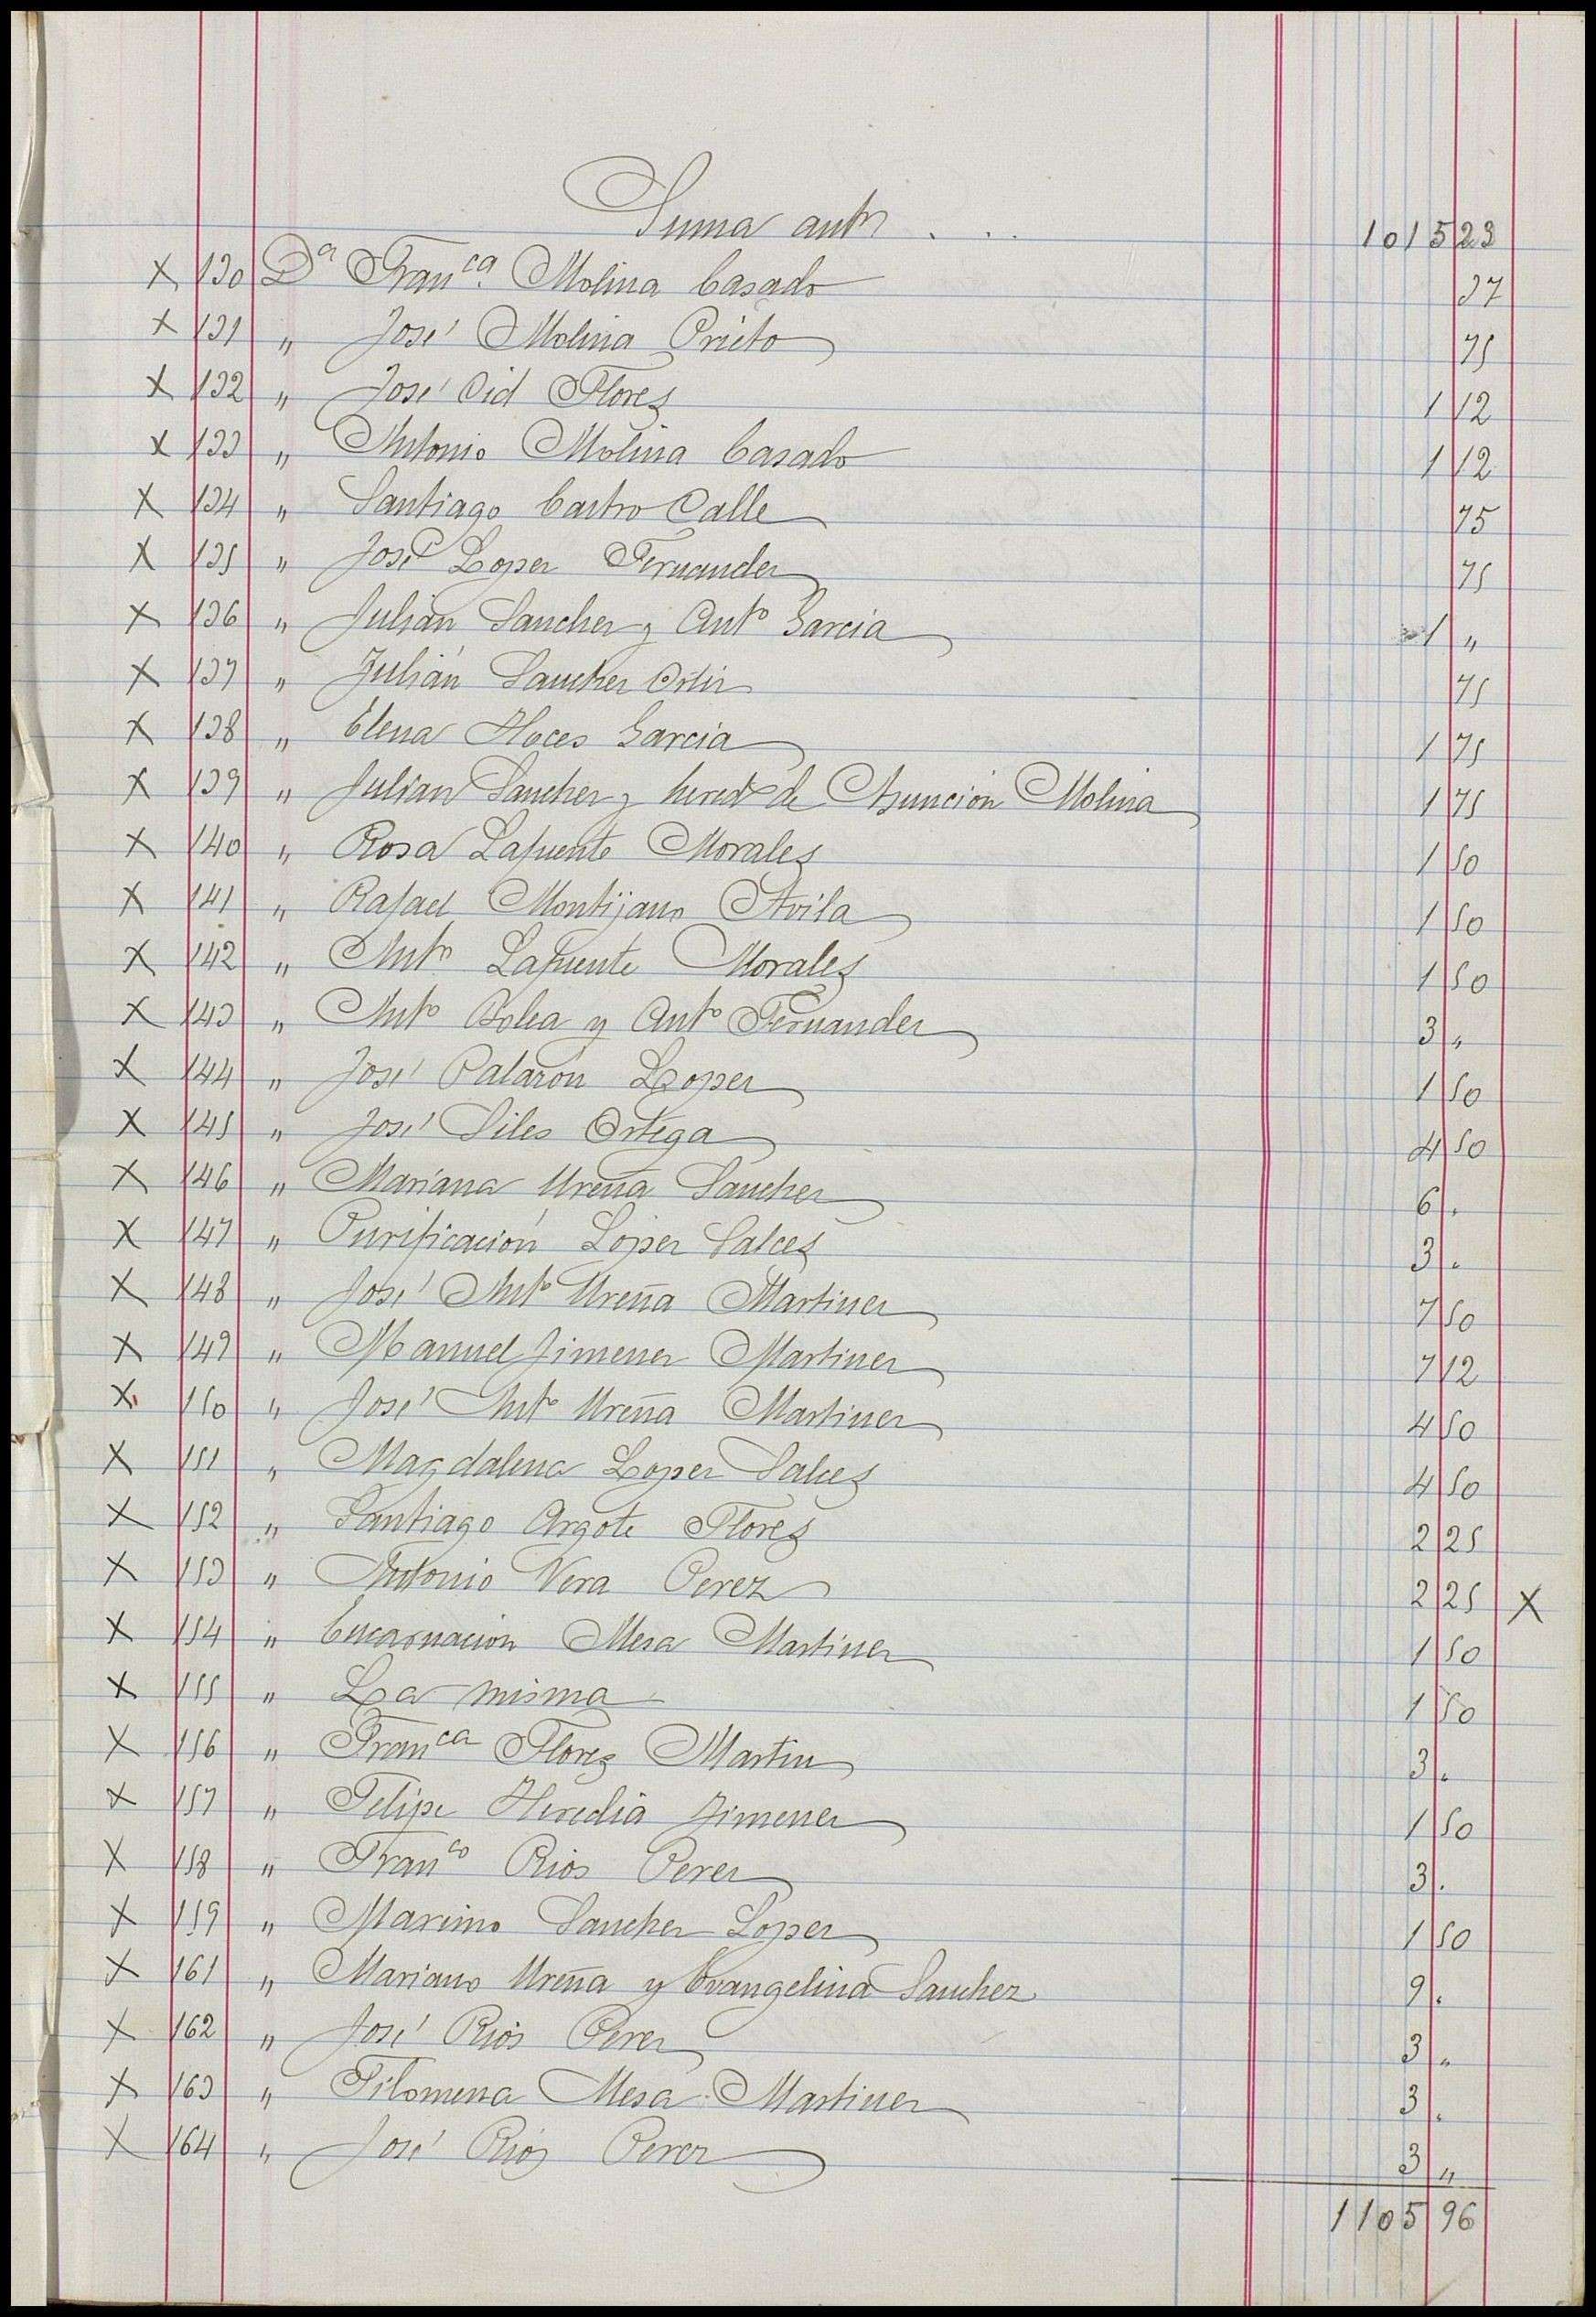 Suma antr . . . 1015 23
X 130 Dª Franca. Molina Casado 37
X 131 " José Molina Prieto 75
X 132 " José Cid Flores 1 12
X 133 " Antonio Molina Casado 1 12
X 134 " Santiago Castro Calle 75
X 135 " José Lopez Fernandez 75
X 136 " Julián Sanchez y Anto Garcia 1 "
X 137 " Julián Sanchez Ortiz 75
X 138 " Elena Hoces Garcia 1 75
X 139 " Julian Sanchez y hereds de Asunción Molina 1 75
X 140 " Rosa Lafuente Morales 1 50
X 141 " Rafael Montijano Avila 1 50
X 142 " Anto Lafuente Morales 1 50
X 143 " Anto Bolea y Anto Fernandez 3 "
X 144 " José Palazón Lopez 1 50
X 145 " José Siles Ortega 4 50
X 146 " Mariana Ureña Sanchez 6 .
X 147 " Purificación López Salces 3 .
X 148 " José Anto Ureña Martinez 7 50
X 149 " Manuel Jimenez Martinez 7 12
X 150 " José Anto Ureña Martinez 4 50
X 151 " Magdalena Lopez Salces 4 50
X 152 " Santiago Argote Flores 2 25
X 153 " Antonio Vera Perez 2 25 X
X 154 " Encarnación Mesa Martinez 1 50
X 155 " La misma 1 50
X 156 " Franca Flores Martin 3 .
X 157 " Felipe Heredia Jimenez 1 50
X 158 " Franco Rios Perez 3 .
X 159 " Maximo Sanchez Lopez 1 50
X 161 " Mariano Ureña y Evangelina Sanchez 9 .
X 162 " José Rios Perez 3 "
X 163 " Filomena Mesa Martinez 3 .
X 164 " José Rios Perez 3 "
1105 96